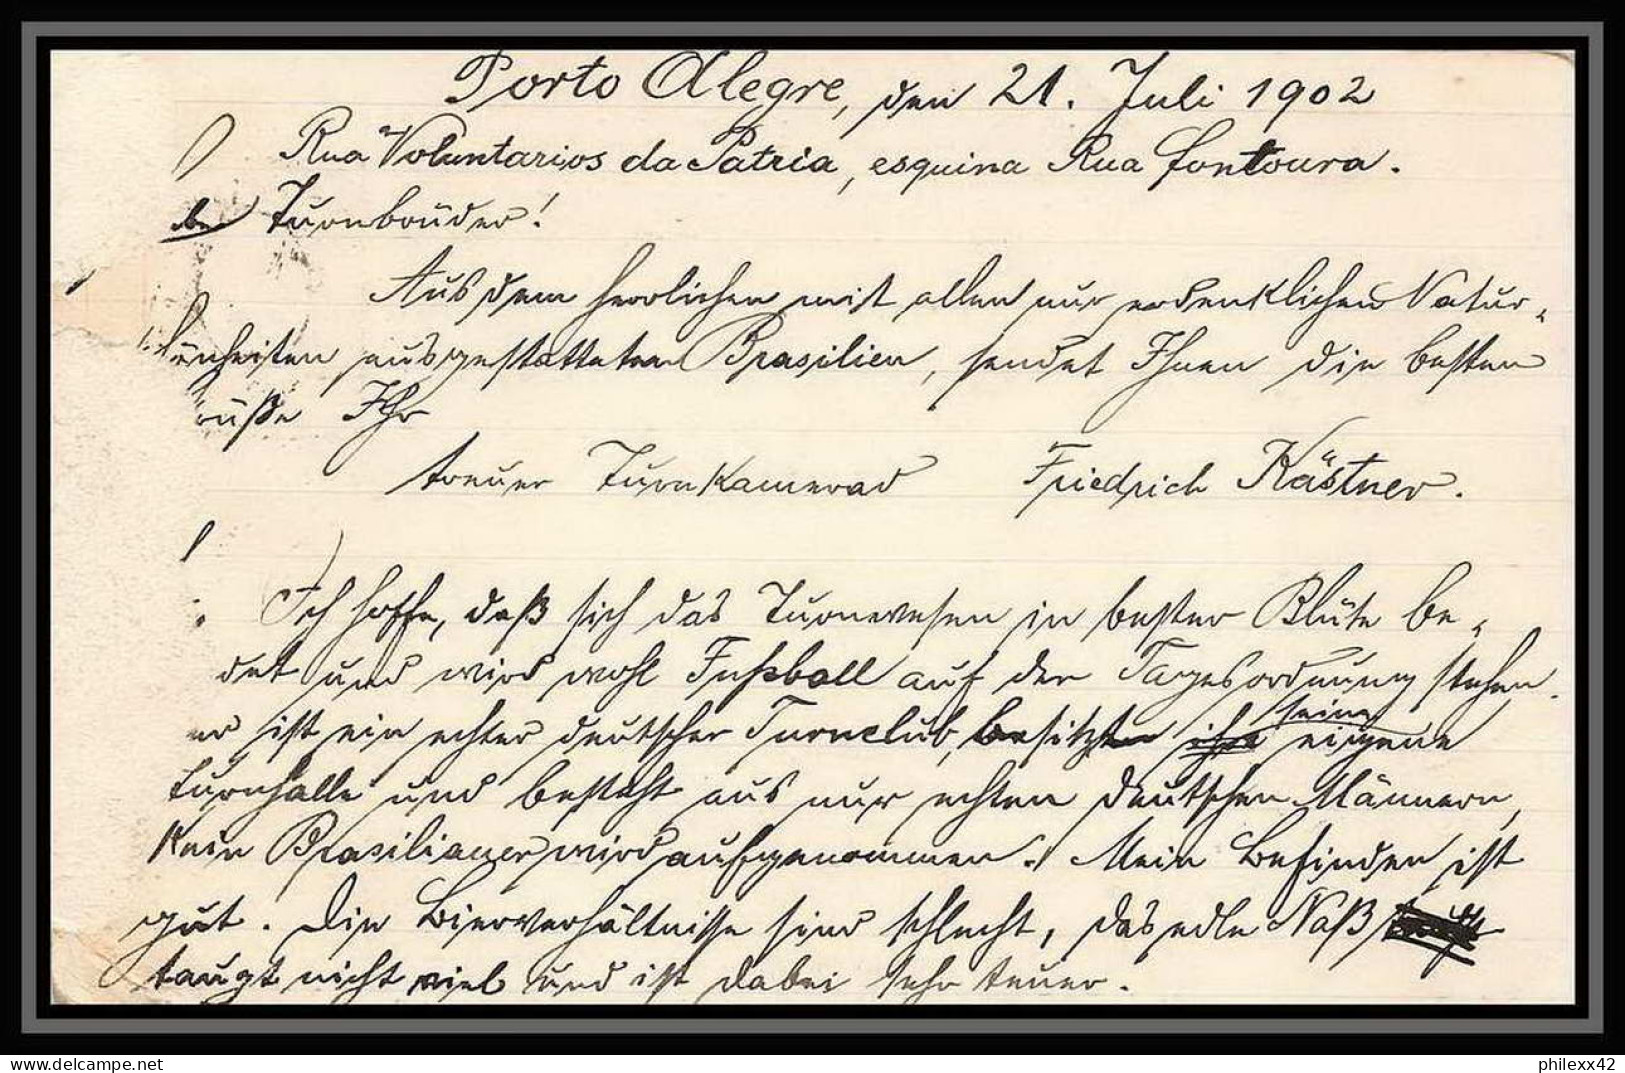 Porto Alegre, den 21. Juli 1902
Rua Voluntarios da Patria, esquina Rua Fontoura.
Turnbrüder!
Aus dem herrlichen mit allen nur erdenklichen Natur-
önheiten ausgestatteten Brasilien, sendet Ihnen die besten
rüße Ihr
treuer Turnkamerad Friedrich Kästner.
Ich hoffe, daß sich das Turnwesen in bester Blüte be-
det und wird wohl Fußball auf der Tagesordnung stehen.
er ist ein echter deutscher Turnclub, besitzt seine eigene
Turnhalle und besteht aus nur echten deutschen Männern,
kein Brasilianer wird aufgenommen. Mein Befinden ist
gut. Die Bierverhältnisse sind schlecht, das edle Naß
taugt nicht viel und ist dabei sehr teuer.
philexx42